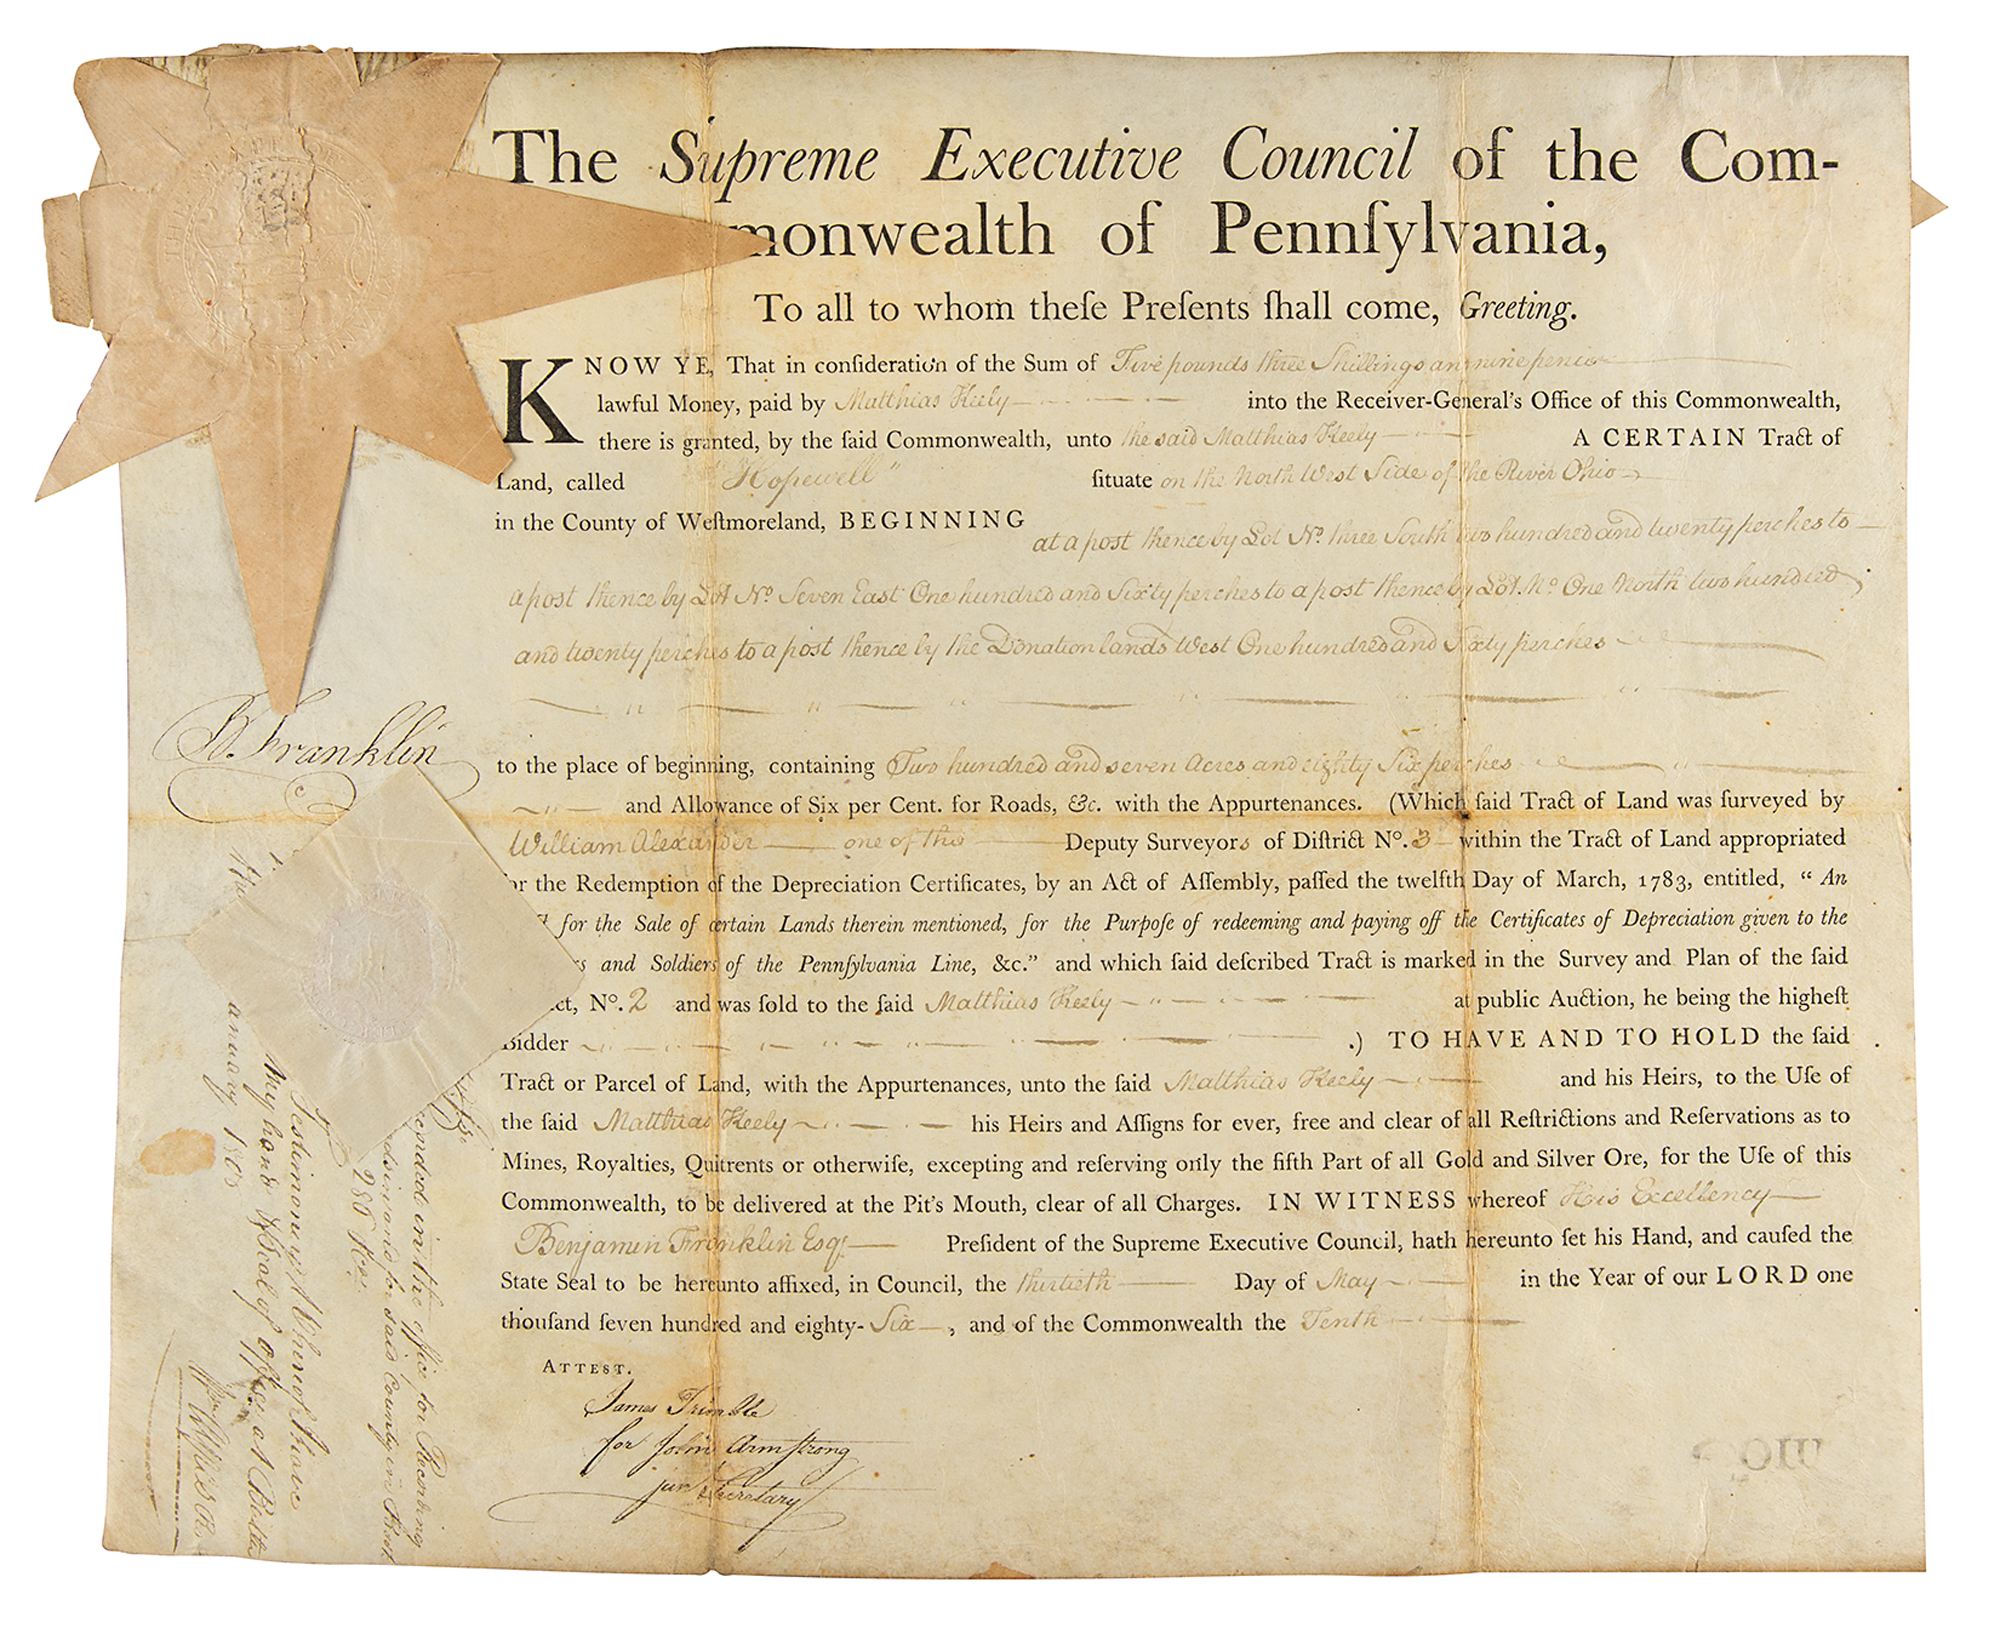 The Supreme Executive Council of the Com-
monwealth of Pennſylvania,
To all to whom theſe Preſents ſhall come, Greeting.
KNOW YE, That in conſideration of the Sum of Five pounds three Shillings and nine pence
lawful Money, paid by Matthias Keely into the Receiver-General's Office of this Commonwealth,
there is granted, by the ſaid Commonwealth, unto the said Matthias Keely A CERTAIN Tract of
Land, called "Hopewell" ſituate on the North West Side of the River Ohio
in the County of Weſtmoreland, BEGINNING
at a post thence by Lot No. three South two hundred and twenty perches to
a post thence by Lot No. Seven East One hundred and Sixty perches to a post thence by Lot. No. One North two hundred
and twenty perches to a post thence by the Donation lands West One hundred and Sixty perches
to the place of beginning, containing Two hundred and seven Acres and eighty Six perches
and Allowance of Six per Cent. for Roads, &c. with the Appurtenances. (Which ſaid Tract of Land was ſurveyed by
William Alexander one of the Deputy Surveyors of Diſtrict No. 3 within the Tract of Land appropriated
for the Redemption of the Depreciation Certificates, by an Act of Aſſembly, paſſed the twelfth Day of March, 1783, entitled, "An
for the Sale of certain Lands therein mentioned, for the Purpoſe of redeeming and paying off the Certificates of Depreciation given to the
and Soldiers of the Pennſylvania Line, &c." and which ſaid deſcribed Tract is marked in the Survey and Plan of the ſaid
ct, No. 2 and was ſold to the ſaid Matthias Keely at public Auction, he being the higheſt
Bidder .) TO HAVE AND TO HOLD the ſaid
Tract or Parcel of Land, with the Appurtenances, unto the ſaid Matthias Keely and his Heirs, to the Uſe of
the ſaid Matthias Keely his Heirs and Aſſigns for ever, free and clear of all Reſtrictions and Reſervations as to
Mines, Royalties, Quitrents or otherwiſe, excepting and reſerving only the fifth Part of all Gold and Silver Ore, for the Uſe of this
Commonwealth, to be delivered at the Pit's Mouth, clear of all Charges. IN WITNESS whereof His Excellency
Benjamin Franklin Esqr. Preſident of the Supreme Executive Council, hath hereunto ſet his Hand, and cauſed the
State Seal to be hereunto affixed, in Council, the thirtieth Day of May in the Year of our LORD one
thouſand ſeven hundred and eighty-Six, and of the Commonwealth the Tenth
ATTEST.
James Trimble
for John Armstrong
junr Secretary
B. Franklin
in the office for Recording
for said County in
286
Testimony Whereof I have
My hand & Seal of office at
anuary